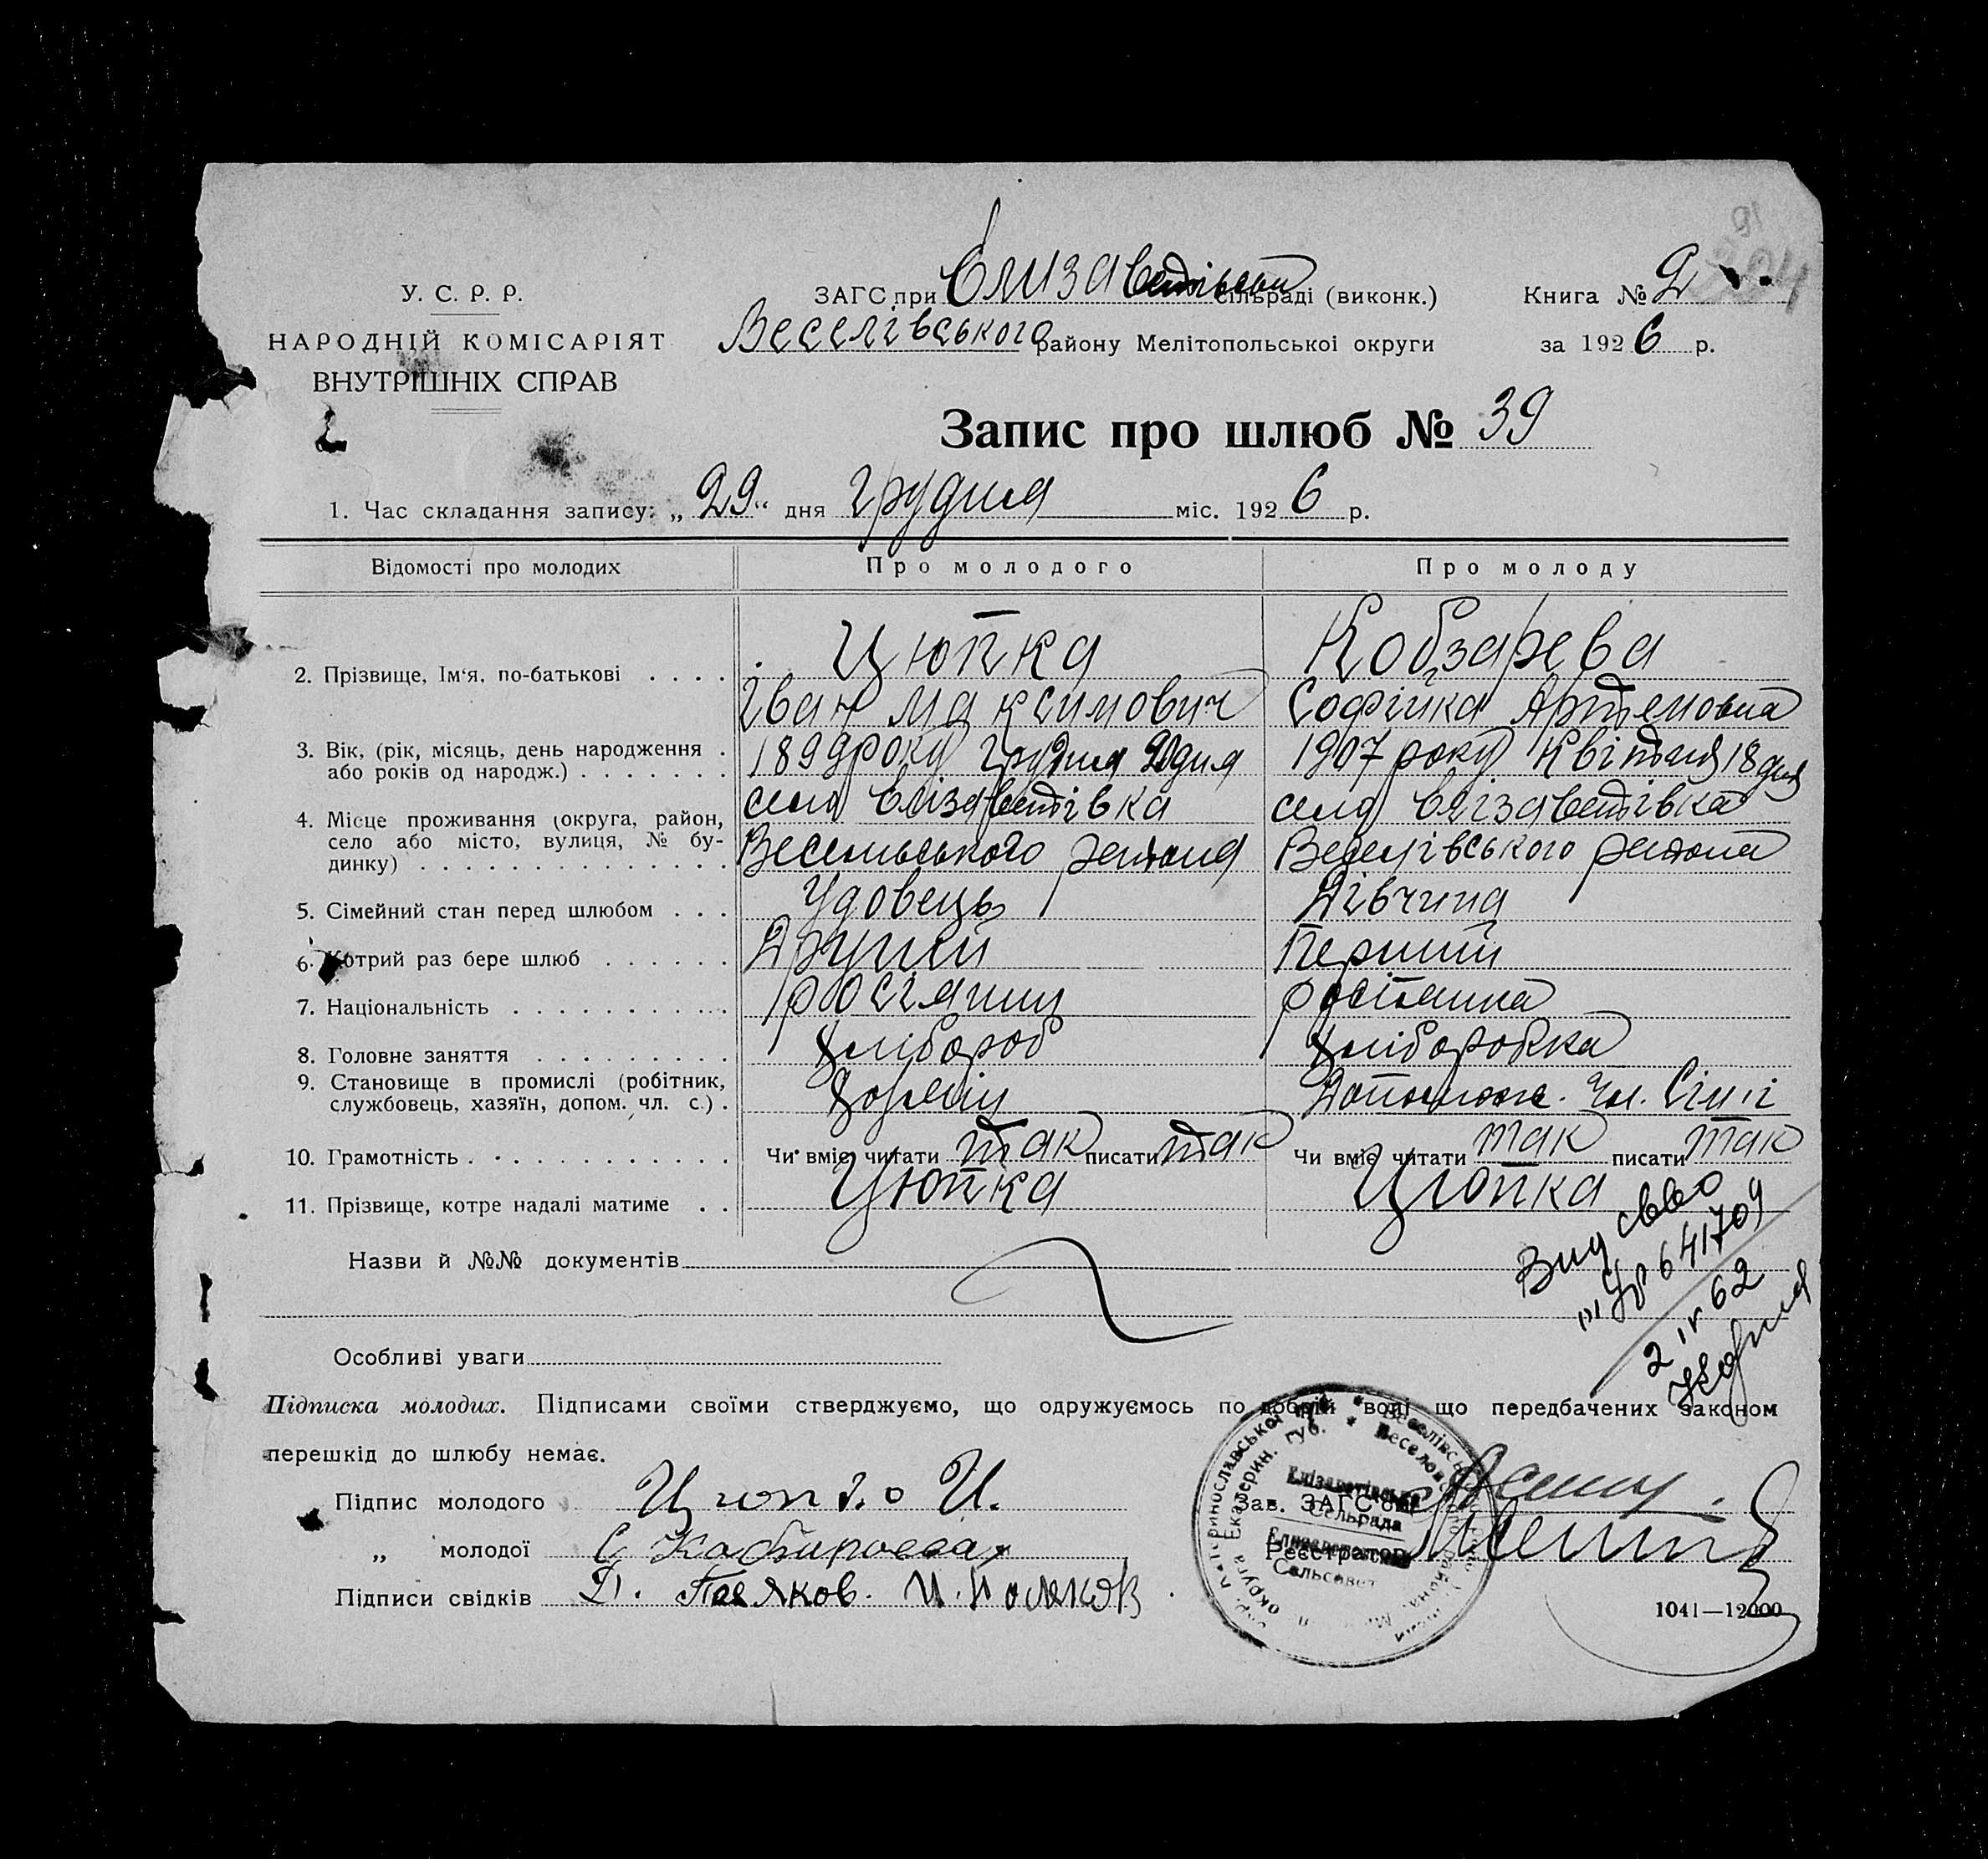 91
У. С. Р. Р.
НАРОДНІЙ КОМІСАРІЯТ
ВНУТРІШНІХ СПРАВ
ЗАГС при Єлизаветівськ сільраді (виконк.)
Веселівського району Мелітопольської округи
Книга № 2
за 1926 р.
Запис про шлюб № 39
1. Час складання запису: „29“ дня грудня міс. 1926 р.
Відомості про молодих Про молодого Про молоду
2. Прізвище, Ім‘я, по-батькові . . . . Цюпка Кобзарева
Іван Максимович Софійка Артемовна
3. Вік, (рік, місяць, день народження . 1899 року грудня 20 дня 1907 року Квітня 18 дня
або років од народж.) . . . . . . .
село Єлізаветівка село Єлізаветівка
4. Місце проживання (округа, район,
село або місто, вулиця, № бу-
динку) . . . . . . . . . . . . . . Весельського района Веселівського района
5. Сімейний стан перед шлюбом . . . Удовець Дівчина
6. Котрий раз бере шлюб . . . . . . Другий Перший
7. Національність . . . . . . . . . . росіянин росіянка
8. Головне заняття . . . . . . . . . хлібороб хліборобка
9. Становище в промислі (робітник,
службовець, хазяїн, допом. чл. с.) . Хозяїн Допомож. Чл. Сімї
10. Грамотність . . . . . . . . . . . . Чи вміє читати так писати так Чи вміє читати так писати так
11. Прізвище, котре надалі матиме . . Цюпка Цюпка
Назви й №№ документів
641709
2 IV 62
Особливі уваги
Підписка молодих. Підписами своїми стверджуємо, що одружуємось по добрій волі що передбачених законом
перешкід до шлюбу немає.
Підпис молодого Цюпко И.
Зав. ЗАГС‘ом
„ молодої С
Реєстратор
Підписи свідків Д. Поляков. И. Поляков
Єлізаветівська
Сельрада
Сельсовет
1041—12000